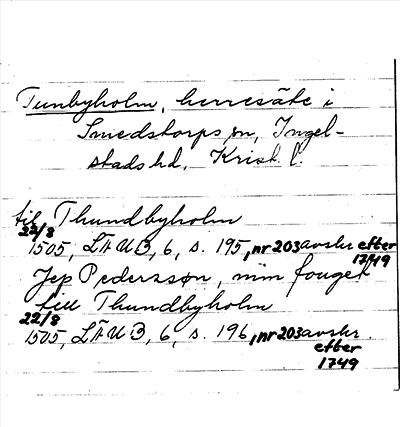 Tunbyholm, herresäte i
Smedstorps sn, Ingel-
stads hd, Krist. l.
till Thundbyholm
22/8
1505, LÄUB, 6, s. 195, nr 203 avskr efter
1749
Jep Pederssøn, min fouget
till Thundbyholm
22/8
1505, LÄUB, 6, s. 196, nr 203 avskr.
efter
1749